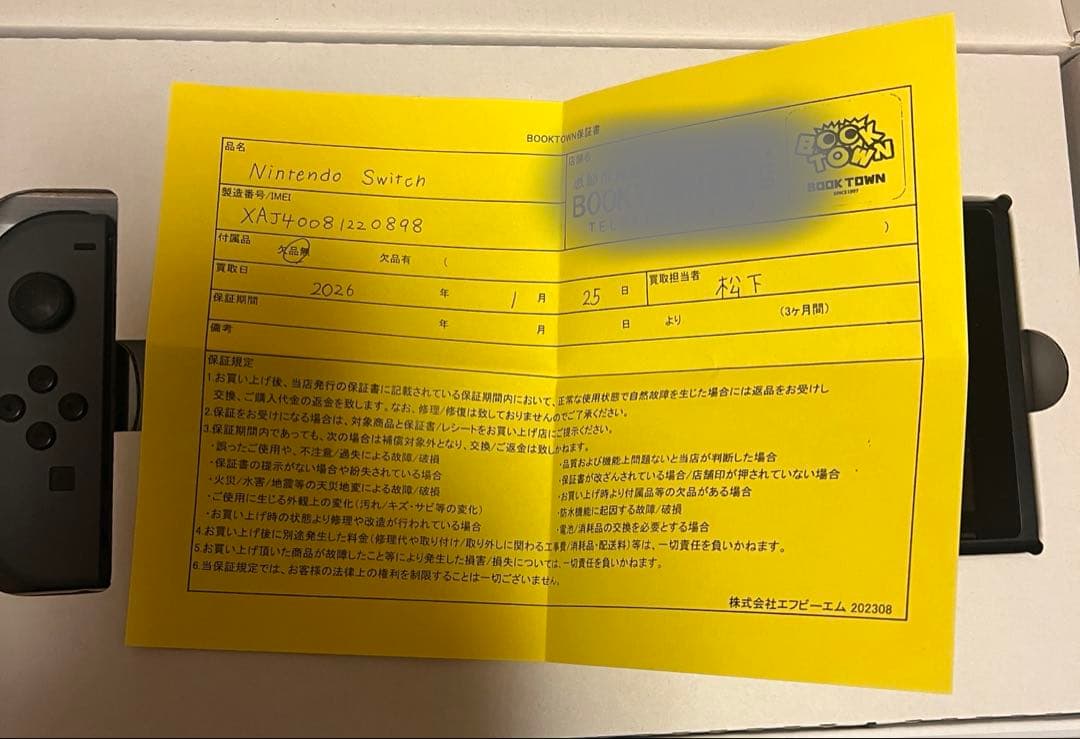 BOOKTOWN保証書
品名
Nintendo Switch
店舗名
BOOK
TEL
BOOK TOWN
BOOK TOWN
SINCE 1997
製造番号/IMEI
XAJ40081220898
付属品
欠品無 欠品有 ( )
買取日
2026 年 1 月 25 日
買取担当者
松下
保証期間
年 月 日 より (3ヶ月間)
備考
保証規定
1.お買い上げ後、当店発行の保証書に記載されている保証期間内において、正常な使用状態で自然故障を生じた場合には返品をお受けし
交換、ご購入代金の返金を致します。なお、修理/修復は致しておりませんのでご了承ください。
2.保証をお受けになる場合は、対象商品と保証書/レシートをお買い上げ店にご提示ください。
3.保証期間内であっても、次の場合は補償対象外となり、交換/ご返金は致しかねます。
・誤ったご使用や、不注意/過失による故障/破損
・保証書の提示がない場合や紛失されている場合
・火災/水害/地震等の天災地変による故障/破損
・ご使用に生じる外観上の変化(汚れ/キズ・サビ等の変化)
・お買い上げ時の状態より修理や改造が行われている場合
・品質および機能上問題ないと当店が判断した場合
・保証書が改ざんされている場合/店舗印が押されていない場合
・お買い上げ時より付属品等の欠品がある場合
・防水機能に起因する故障/破損
・電池/消耗品の交換を必要とする場合
4.お買い上げ後に別途発生した料金(修理代や取り付け/取り外しに関わる工事費/消耗品・配送料)等は、一切責任を負いかねます。
5.お買い上げ頂いた商品が故障したこと等により発生した損害/損失については、一切責任を負いかねます。
6.当保証規定では、お客様の法律上の権利を制限することは一切ございません。
株式会社エフビーエム 202308